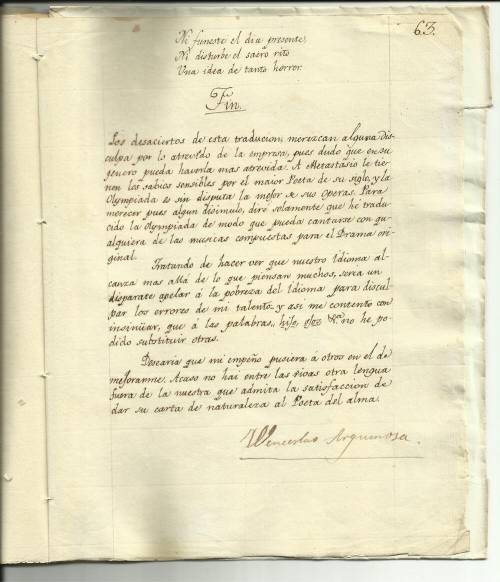 63.
Ni funeste el dia presente,
Ni disturbe el sacro rito
Una idea de tanto horror.
Fin.
Los desaciertos de esta traducion, merezcan alguna dis-
culpa por lo atrevido de la empresa, pues dudo que en su
genero pueda haverla mas atrevida. A Metastasio le tie-
nen los sabios sensibles por el maior Poeta de su siglo, y la
Olympiada es sin disputa la mejor de sus Operas. Para
merecer pues algun disimulo, diré solamente que he tradu-
cido la Olympiada de modo que pueda cantarse con qu-
alquiera de las musicas compuestas para el Drama ori-
ginal.
Tratando de hacer ver que nuestro Idioma al-
canza mas allá de lo que piensan muchos, seria un
disparate apelar á la pobreza del Idioma para discul-
par los errores de mi talento y asi me contento con
insinüar, que á las palabras, hijo, no he po-
dido substituir otras.
Desearia que mi empeño pusiera á otros en el de
mejorarme. Acaso no hai entre las vivas otra lengua
fuera de la nuestra que admita la satisfaccion de
dar su carta de naturaleza al Poeta del alma.
Wenceslao Argumosa.